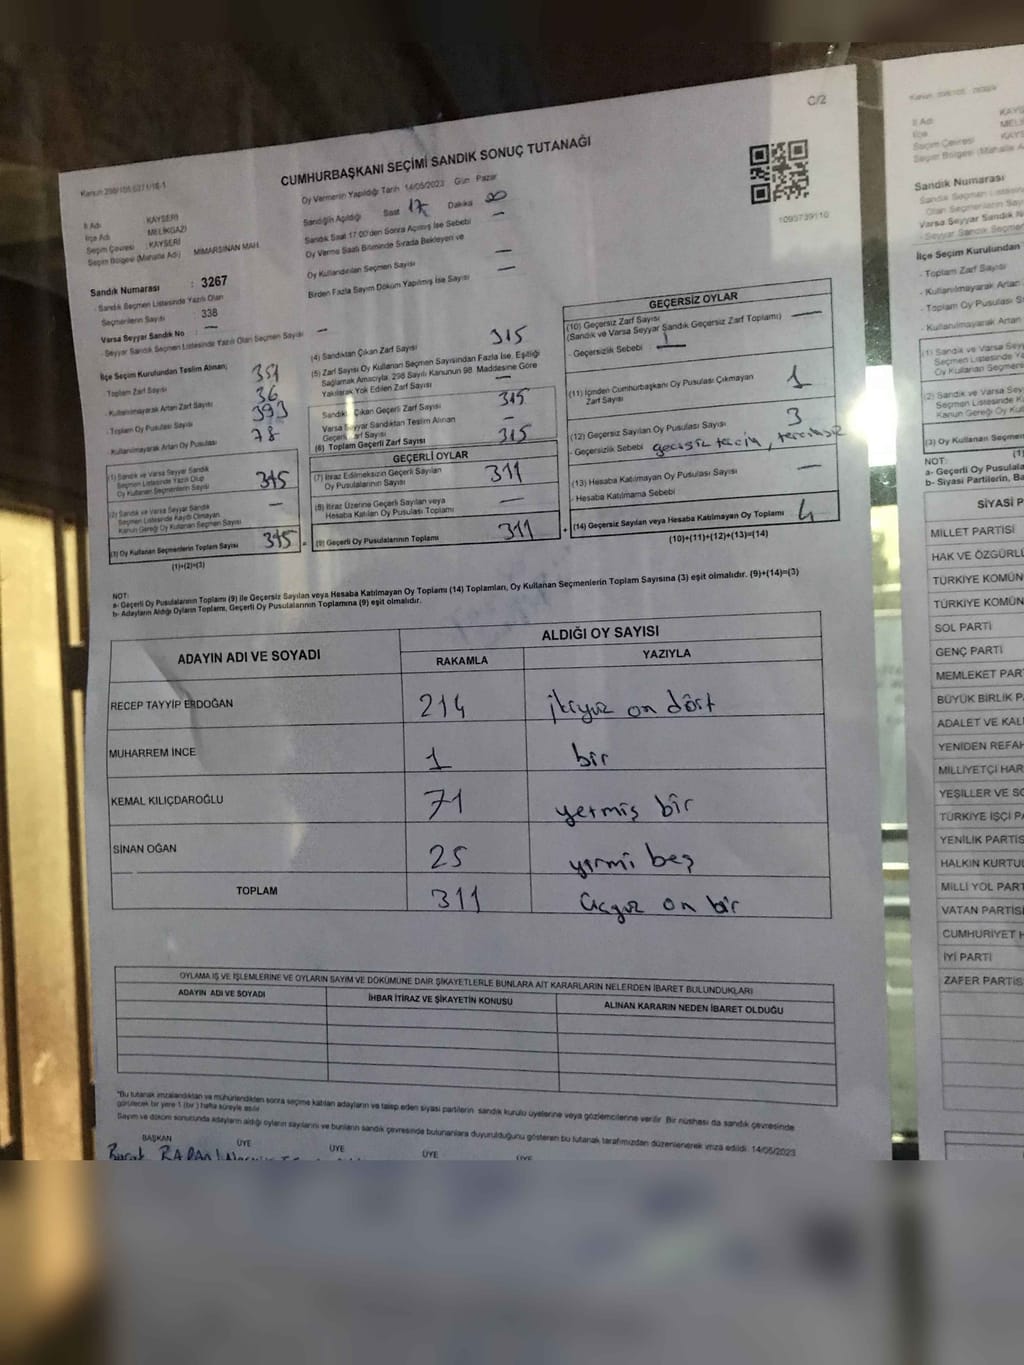 C/2
Kanun 298/105,6271/16-1
CUMHURBAŞKANI SEÇİMİ SANDIK SONUÇ TUTANAĞI
Oy Vermenin Yapıldığı Tarih 14/05/2023 Gün Pazar
İl Adı KAYSERİ
İlçe Adı MELİKGAZİ
Seçim Çevresi : KAYSERİ
Seçim Bölgesi (Mahalle Adı) MİMARSİNAN MAH.
Sandığın Açıldığı Saat 17 Dakika 00
Sandık Saat 17:00'den Sonra Açılmış İse Sebebi —
Oy Verme Saati Bitiminde Sırada Bekleyen ve
Oy Kullandırılan Seçmen Sayısı —
Birden Fazla Sayım Döküm Yapılmış İse Sayısı —
1093739110
Sandık Numarası : 3267
- Sandık Seçmen Listesinde Yazılı Olan
Seçmenlerin Sayısı : 338
Varsa Seyyar Sandık No —
- Seyyar Sandık Seçmen Listesinde Yazılı Olan Seçmen Sayısı —
İlçe Seçim Kurulundan Teslim Alınan;
- Toplam Zarf Sayısı 351
- Kullanılmayarak Artan Zarf Sayısı 36
- Toplam Oy Pusulası Sayısı 393
- Kullanılmayarak Artan Oy Pusulası 78
(1) Sandık ve Varsa Seyyar Sandık
Seçmen Listesinde Yazılı Olup
Oy Kullanan Seçmenlerin Sayısı 315
(2) Sandık ve Varsa Seyyar Sandık
Seçmen Listesinde Kayıtlı Olmayan
Kanun Gereği Oy Kullanan Seçmen Sayısı —
(3) Oy Kullanan Seçmenlerin Toplam Sayısı 315 =
(1)+(2)=(3)
(4) Sandıktan Çıkan Zarf Sayısı 315
(5) Zarf Sayısı Oy Kullanan Seçmen Sayısından Fazla İse, Eşitliği
Sağlamak Amacıyla, 298 Sayılı Kanunun 98. Maddesine Göre
Yakılarak Yok Edilen Zarf Sayısı —
Sandıktan Çıkan Geçerli Zarf Sayısı 315
Varsa Seyyar Sandıktan Teslim Alınan
Geçerli Zarf Sayısı —
(6) Toplam Geçerli Zarf Sayısı 315
GEÇERLİ OYLAR
(7) İtiraz Edilmeksizin Geçerli Sayılan
Oy Pusulalarının Sayısı 311
(8) İtiraz Üzerine Geçerli Sayılan veya
Hesaba Katılan Oy Pusulası Toplamı —
(9) Geçerli Oy Pusulalarının Toplamı 311 +
GEÇERSİZ OYLAR
(10) Geçersiz Zarf Sayısı
(Sandık ve Varsa Seyyar Sandık Geçersiz Zarf Toplamı) —
- Geçersizlik Sebebi
(11) İçinden Cumhurbaşkanı Oy Pusulası Çıkmayan
Zarf Sayısı 1
(12) Geçersiz Sayılan Oy Pusulası Sayısı 3
- Geçersizlik Sebebi geçersiz tercih,
(13) Hesaba Katılmayan Oy Pusulası Sayısı —
- Hesaba Katılmama Sebebi
(14) Geçersiz Sayılan veya Hesaba Katılmayan Oy Toplamı 4
(10)+(11)+(12)+(13)=(14)
NOT:
a- Geçerli Oy Pusulalarının Toplamı (9) ile Geçersiz Sayılan veya Hesaba Katılmayan Oy Toplamı (14) Toplamları, Oy Kullanan Seçmenlerin Toplam Sayısına (3) eşit olmalıdır. (9)+(14)=(3)
b- Adayların Aldığı Oyların Toplamı, Geçerli Oy Pusulalarının Toplamına (9) eşit olmalıdır.
ADAYIN ADI VE SOYADI ALDIĞI OY SAYISI
RAKAMLA YAZIYLA
RECEP TAYYİP ERDOĞAN 214 ikiyüz on dört
MUHARREM İNCE 1 bir
KEMAL KILIÇDAROĞLU 71 yetmiş bir
SİNAN OĞAN 25 yirmi beş
TOPLAM 311 üçyüz on bir
OYLAMA İŞ VE İŞLEMLERİNE VE OYLARIN SAYIM VE DÖKÜMÜNE DAİR ŞİKAYETLERLE BUNLARA AİT KARARLARIN NELERDEN İBARET BULUNDUKLARI
ADAYIN ADI VE SOYADI İHBAR İTİRAZ VE ŞİKAYETİN KONUSU ALINAN KARARIN NEDEN İBARET OLDUĞU
*Bu tutanak imzalandıktan ve mühürlendikten sonra seçime katılan adayların ve talep eden siyasi partilerin sandık kurulu üyelerine veya gözlemcilerine verilir. Bir nüshası da sandık çevresinde
görülecek bir yere 1 (bir) hafta süreyle asılır.
Sayım ve döküm sonucunda adayların aldığı oyların sayılarını ve bunların sandık çevresinde bulunanlara duyurulduğunu gösteren bu tutanak tarafımızdan düzenlenerek imza edildi. 14/05/2023
BAŞKAN ÜYE ÜYE ÜYE ÜYE
İl Adı KAYS
İlçe MELİ
Seçim Çevresi KAYS
Seçim Bölgesi (Mahalle A
Sandık Numarası
- Sandık Seçmen Listesin
Olan Seçmenlerin Sayı
Varsa Seyyar Sandık N
- Seyyar Sandık Seçme
İlçe Seçim Kurulundan
- Toplam Zarf Sayısı
- Kullanılmayarak Artan
- Toplam Oy Pusulası S
- Kullanılmayarak Artan
(1) Sandık ve Varsa Sey
Seçmen Listesinde Ya
Oy Kullanan Seçmenle
(2) Sandık ve Varsa Sey
Seçmen Listesinde K
Kanun Gereği Oy Kull
(3) Oy Kullanan Seçmen
NOT: (1)
a- Geçerli Oy Pusulala
b- Siyasi Partilerin, Ba
SİYASİ P
MİLLET PARTİSİ
HAK VE ÖZGÜRLÜ
TÜRKİYE KOMÜN
TÜRKİYE KOMÜN
SOL PARTİ
GENÇ PARTİ
MEMLEKET PAR
BÜYÜK BİRLİK P
ADALET VE KAL
YENİDEN REFAH
MİLLİYETÇİ HAR
YEŞİLLER VE SO
TÜRKİYE İŞÇİ P
YENİLİK PARTİS
HALKIN KURTUL
MİLLİ YOL PART
VATAN PARTİSİ
CUMHURİYET H
İYİ PARTİ
ZAFER PARTİS